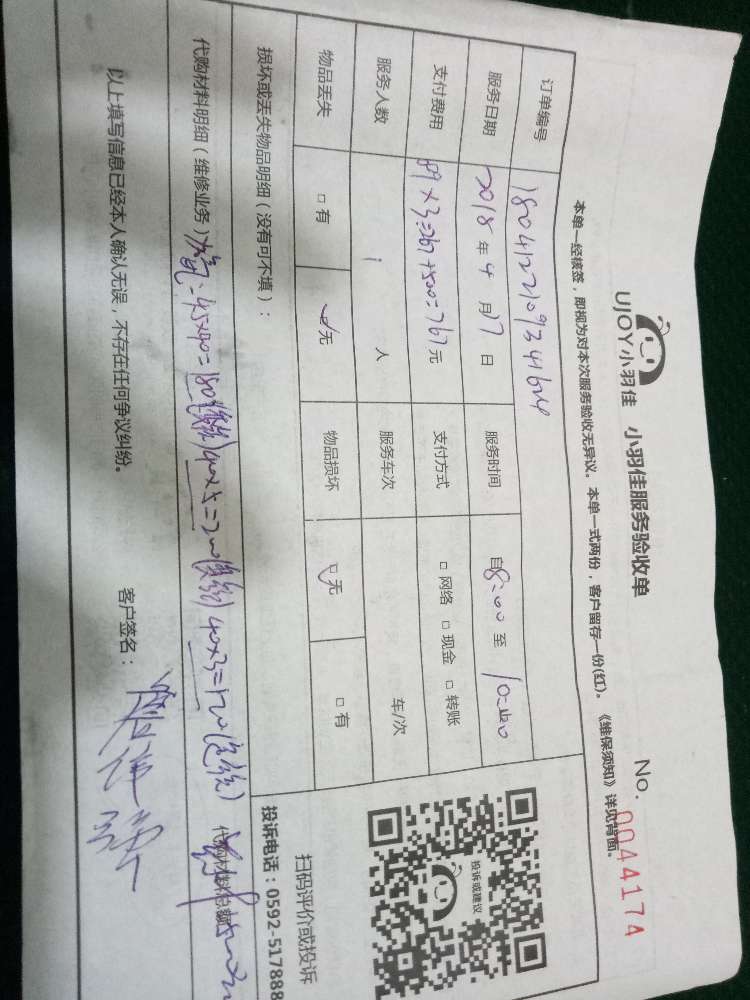 UJOY小羽佳 小羽佳服务验收单 No. 0044174
本单一经核签，即视为对本次服务验收无异议。本单一式两份，客户留存一份(红)。《维保须知》详见背面。
订单编号 1804122109341624
服务日期 2018 年 4 月 17 日 服务时间 自 8:00 至 10:40
支付费用 89×3=267+500=767 元 支付方式 □ 网络 □ 现金 □ 转账
服务人数 1 人 服务车次 车/次
物品丢失 □ 有 □ 无 物品损坏 □ 无 □ 有
损坏或丢失物品明细（没有可不填）：
投诉或建议
扫码评价或投诉
投诉电话：0592-517888
代购材料明细（维修业务） 45×40=180 40×5=200 40×3=120 代购材料总额
以上填写信息已经本人确认无误，不存在任何争议纠纷。 客户签名：